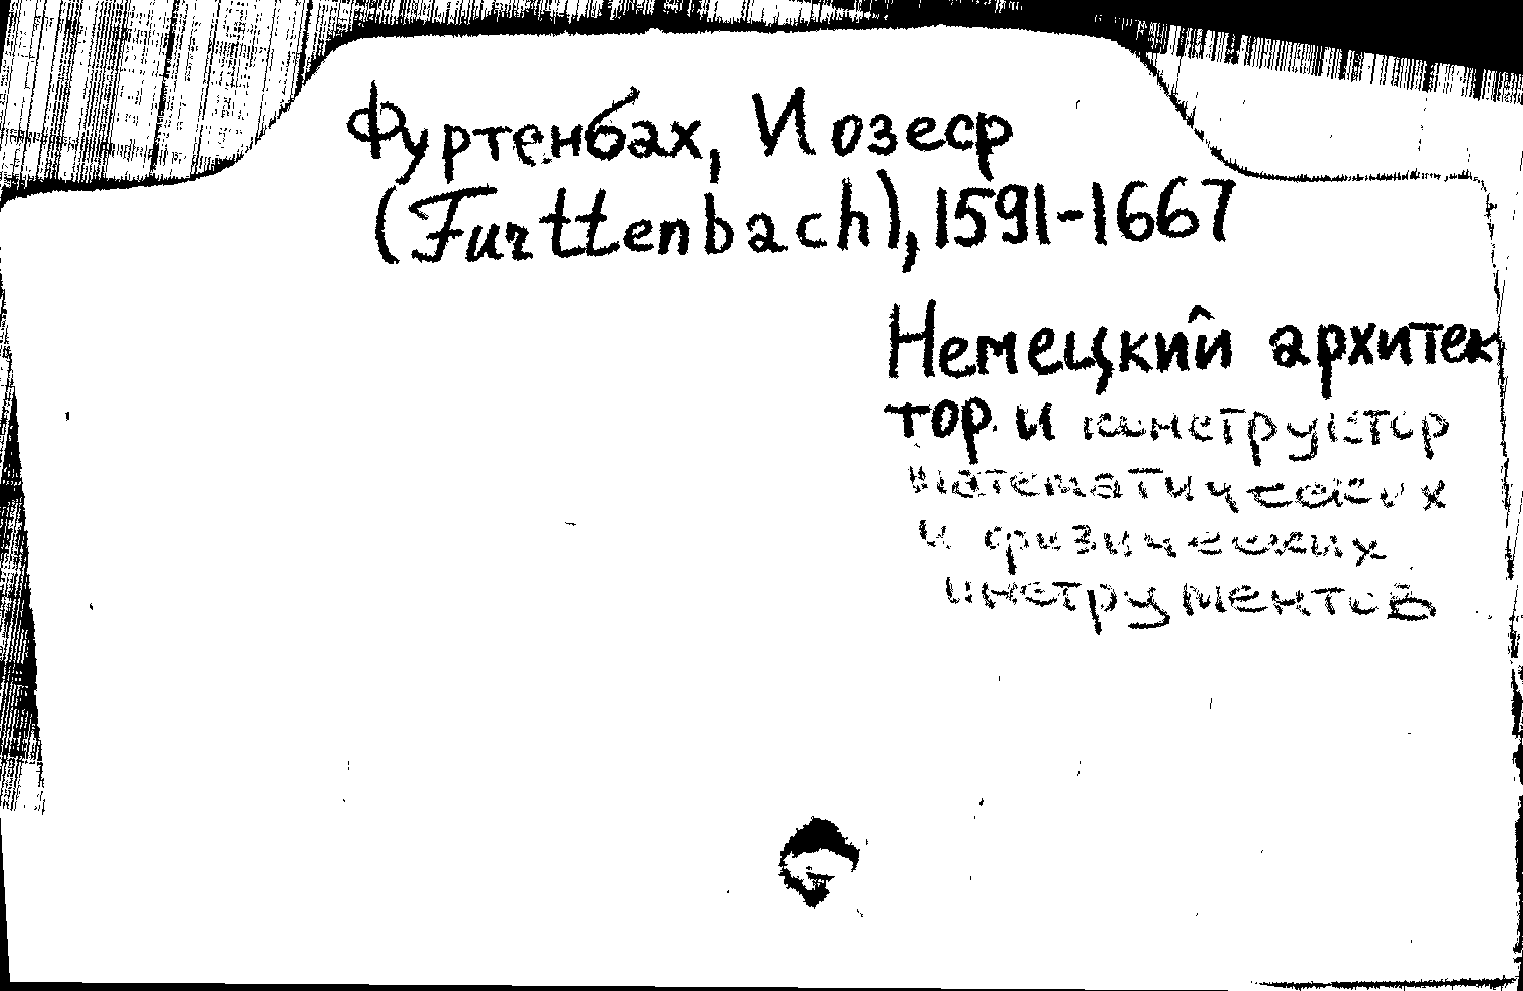 Фуртенбах, Иозеф
(Furttenbach), 1591-1667
Немецкий архитек
тор и конструктор
математических
и физических
инструментов